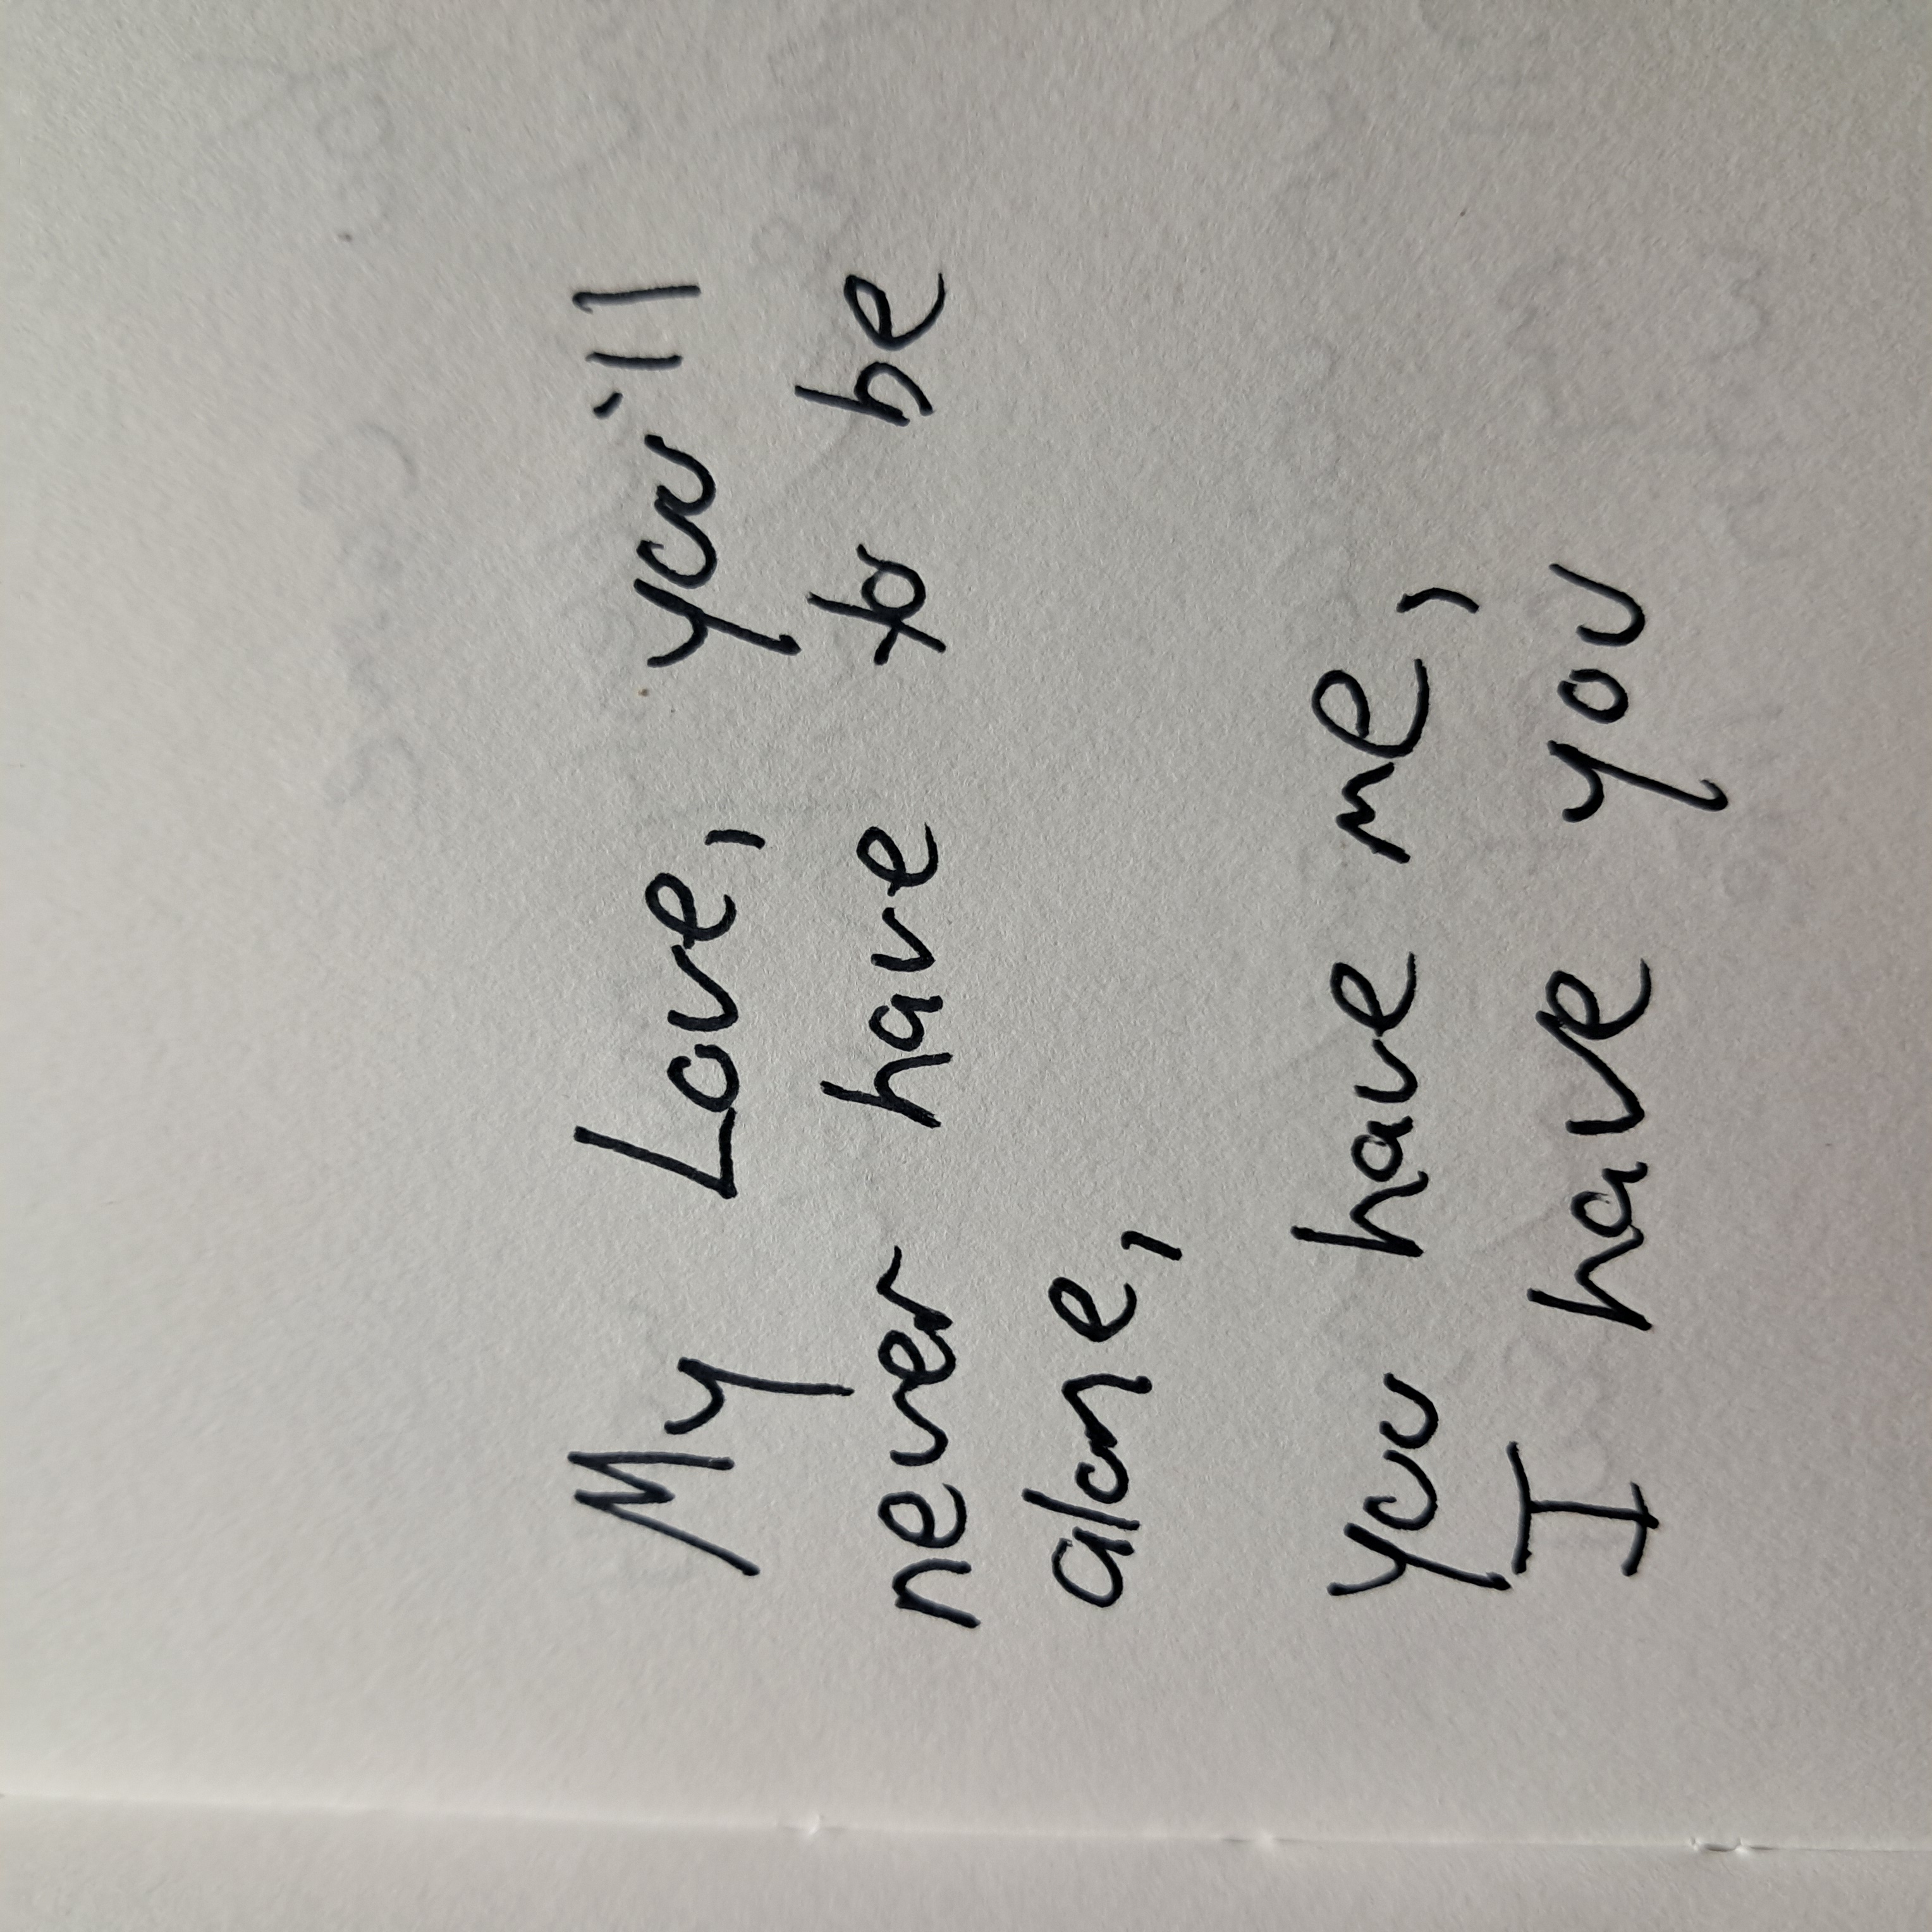 My Love, you'll
never have to be
alone,
you have me,
I have you